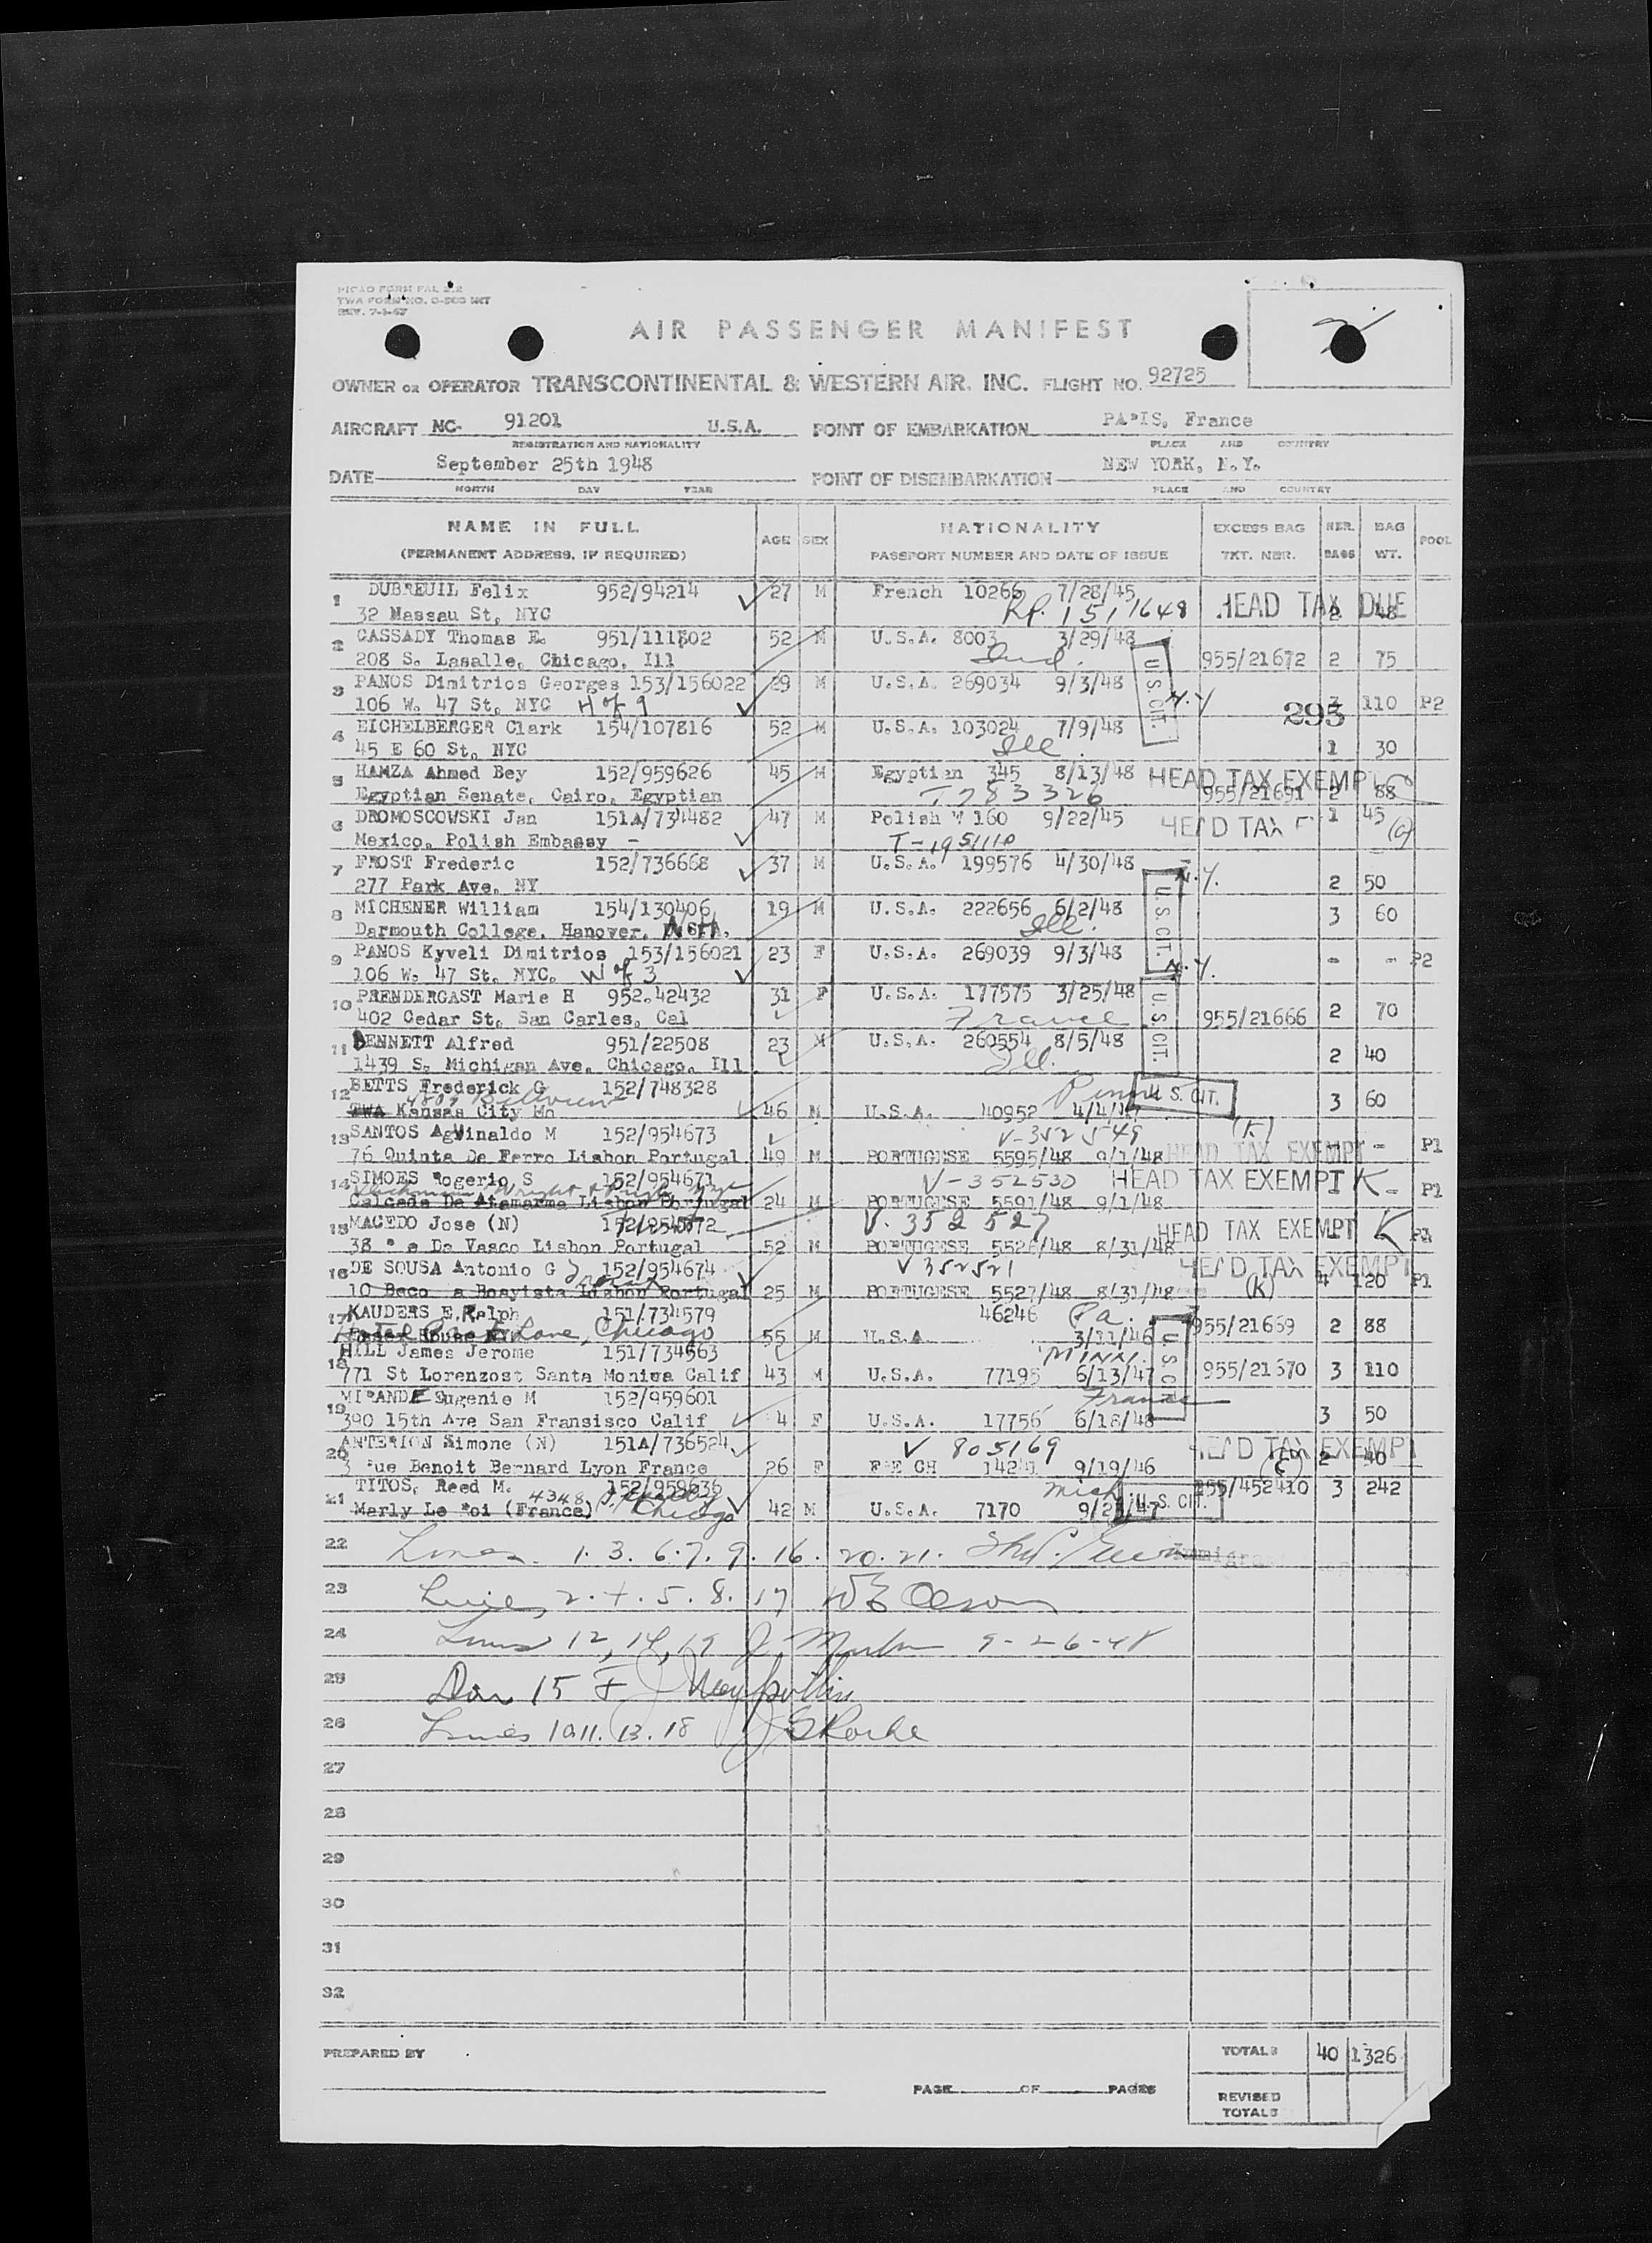 PICAO FORM PAL 2.2
TWA FORM NO. O-500 INT
REV. 7-1-47
AIR PASSENGER MANIFEST
OWNER OR OPERATOR TRANSCONTINENTAL & WESTERN AIR, INC. FLIGHT NO. 92725
AIRCRAFT NC- 91201 U.S.A. POINT OF EMBARKATION PARIS, France
REGISTRATION AND NATIONALITY PLACE AND COUNTRY
DATE September 25th 1948 POINT OF DISEMBARKATION NEW YORK, N.Y.
MONTH DAY YEAR PLACE AND COUNTRY
NAME IN FULL AGE SEX NATIONALITY EXCESS BAG NBR. BAG POOL
(PERMANENT ADDRESS, IF REQUIRED) PASSPORT NUMBER AND DATE OF ISSUE TKT. NBR. BAGS WT.
1 DUBREUIL Felix 952/94214 27 M French 10266 7/28/45 HEAD TAX DUE
32 Massau St, NYC R.P. 1517648 2 48
2 CASSADY Thomas E. 951/111802 52 M U.S.A. 8003 3/29/48
208 S. Lasalle, Chicago, Ill Ind. U.S. CIT. 955/21672 2 75
3 PANOS Dimitrios Georges 153/156022 29 M U.S.A. 269034 9/3/48
106 W. 47 St, NYC H of 9 N.Y 293 3 110 P2
4 EICHELBERGER Clark 154/107816 52 M U.S.A. 103024 7/9/48
45 E 60 St, NYC Ill. 1 30
5 HAMZA Ahmed Bey 152/959626 45 M Egyptian 345 8/13/48 HEAD TAX EXEMPT
Egyptian Senate, Cairo, Egyptian T 783326 955/21691 2 88
6 DROMOSCOWSKI Jan 151A/734482 47 M Polish W 160 9/22/45 HEAD TAX 1 45
Mexico, Polish Embassy - T-1951110
7 FROST Frederic 152/736668 37 M U.S.A. 199576 4/30/48 N.Y.
277 Park Ave. NY 2 50
8 MICHENER William 154/130406 19 M U.S.A. 222656 6/2/48 U.S. CIT. 3 60
Darmouth College, Hanover, N.H. Ill.
9 PANOS Kyveli Dimitrios 153/156021 23 F U.S.A. 269039 9/3/48 - - P2
106 W. 47 St. NYC. W of 3 N.Y.
10 PRENDERGAST Marie H 952.42432 31 F U.S.A. 177575 3/25/48
402 Cedar St, San Carles, Cal France U.S. CIT. 955/21666 2 70
11 BENNETT Alfred 951/22508 23 M U.S.A. 260554 8/5/48
1439 S. Michigan Ave. Chicago, Ill Ill. 2 40
12 BETTS Frederick G 152/748328 Penn U.S. CIT.
TWA Kansas City Mo 46 M U.S.A. 40952 4/4/47 3 60
13 SANTOS Aguinaldo M 152/954673 V-352549 (K)
76 Quinta De Ferro Lisbon Portugal 49 M PORTUGESE 5595/48 9/1/48 HEAD TAX EXEMPT - P1
14 SIMOES Rogerio S 152/954671 V-352530 HEAD TAX EXEMPT K
Calcada Da Atamarma Lisbon Portugal 24 M PORTUGESE 5591/48 9/1/48 - P1
15 MACEDO Jose (N) V. 352527 HEAD TAX EXEMPT K
38 Da Vasco Lisbon Portugal 52 M PORTUGESE 5526/48 8/31/48 P1
16 DE SOUSA Antonio G 152/954674 V352521 HEAD TAX EXEMPT
10 Beco a Boavista Lisbon Portugal 25 M PORTUGESE 5527/48 8/31/48 (K) 4 120 P1
17 KAUDERS E.Ralph 151/734579 46246 Pa.
Chicago 55 M U.S.A 3/11/46 955/21669 2 88
18 HILL James Jerome 151/734563 Minn. U.S. CIT.
771 St Lorenzost Santa Moniva Calif 43 M U.S.A. 77195 6/13/47 955/21670 3 110
19 MIRANDE Eugenie M 152/959601 France
390 15th Ave San Fransisco Calif 4 F U.S.A. 17756 6/18/48 3 50
20 ANTERION Simone (N) 151A/736524 V 805169 HEAD TAX EXEMPT
3 Rue Benoit Bernard Lyon France 26 F F E CH 9/19/46 2 40
21 TITOS, Reed M. 152/959636 Mich 3 242
Marly Le Roi (France) 4348 Chicago 42 M U.S.A. 7170 U.S. CIT.
22 Lines 1. 3. 6. 7. 9. 16. 20. 21.
23 Lines 2. 4. 5. 8. 17 Olson
24 Lines 12, 14, 19 9-26-48
25 15
26 Lines 10 11. 13. 18
27
28
29
30
31
32
PREPARED BY TOTALS 40 1326
PAGE OF PAGES REVISED
TOTALS